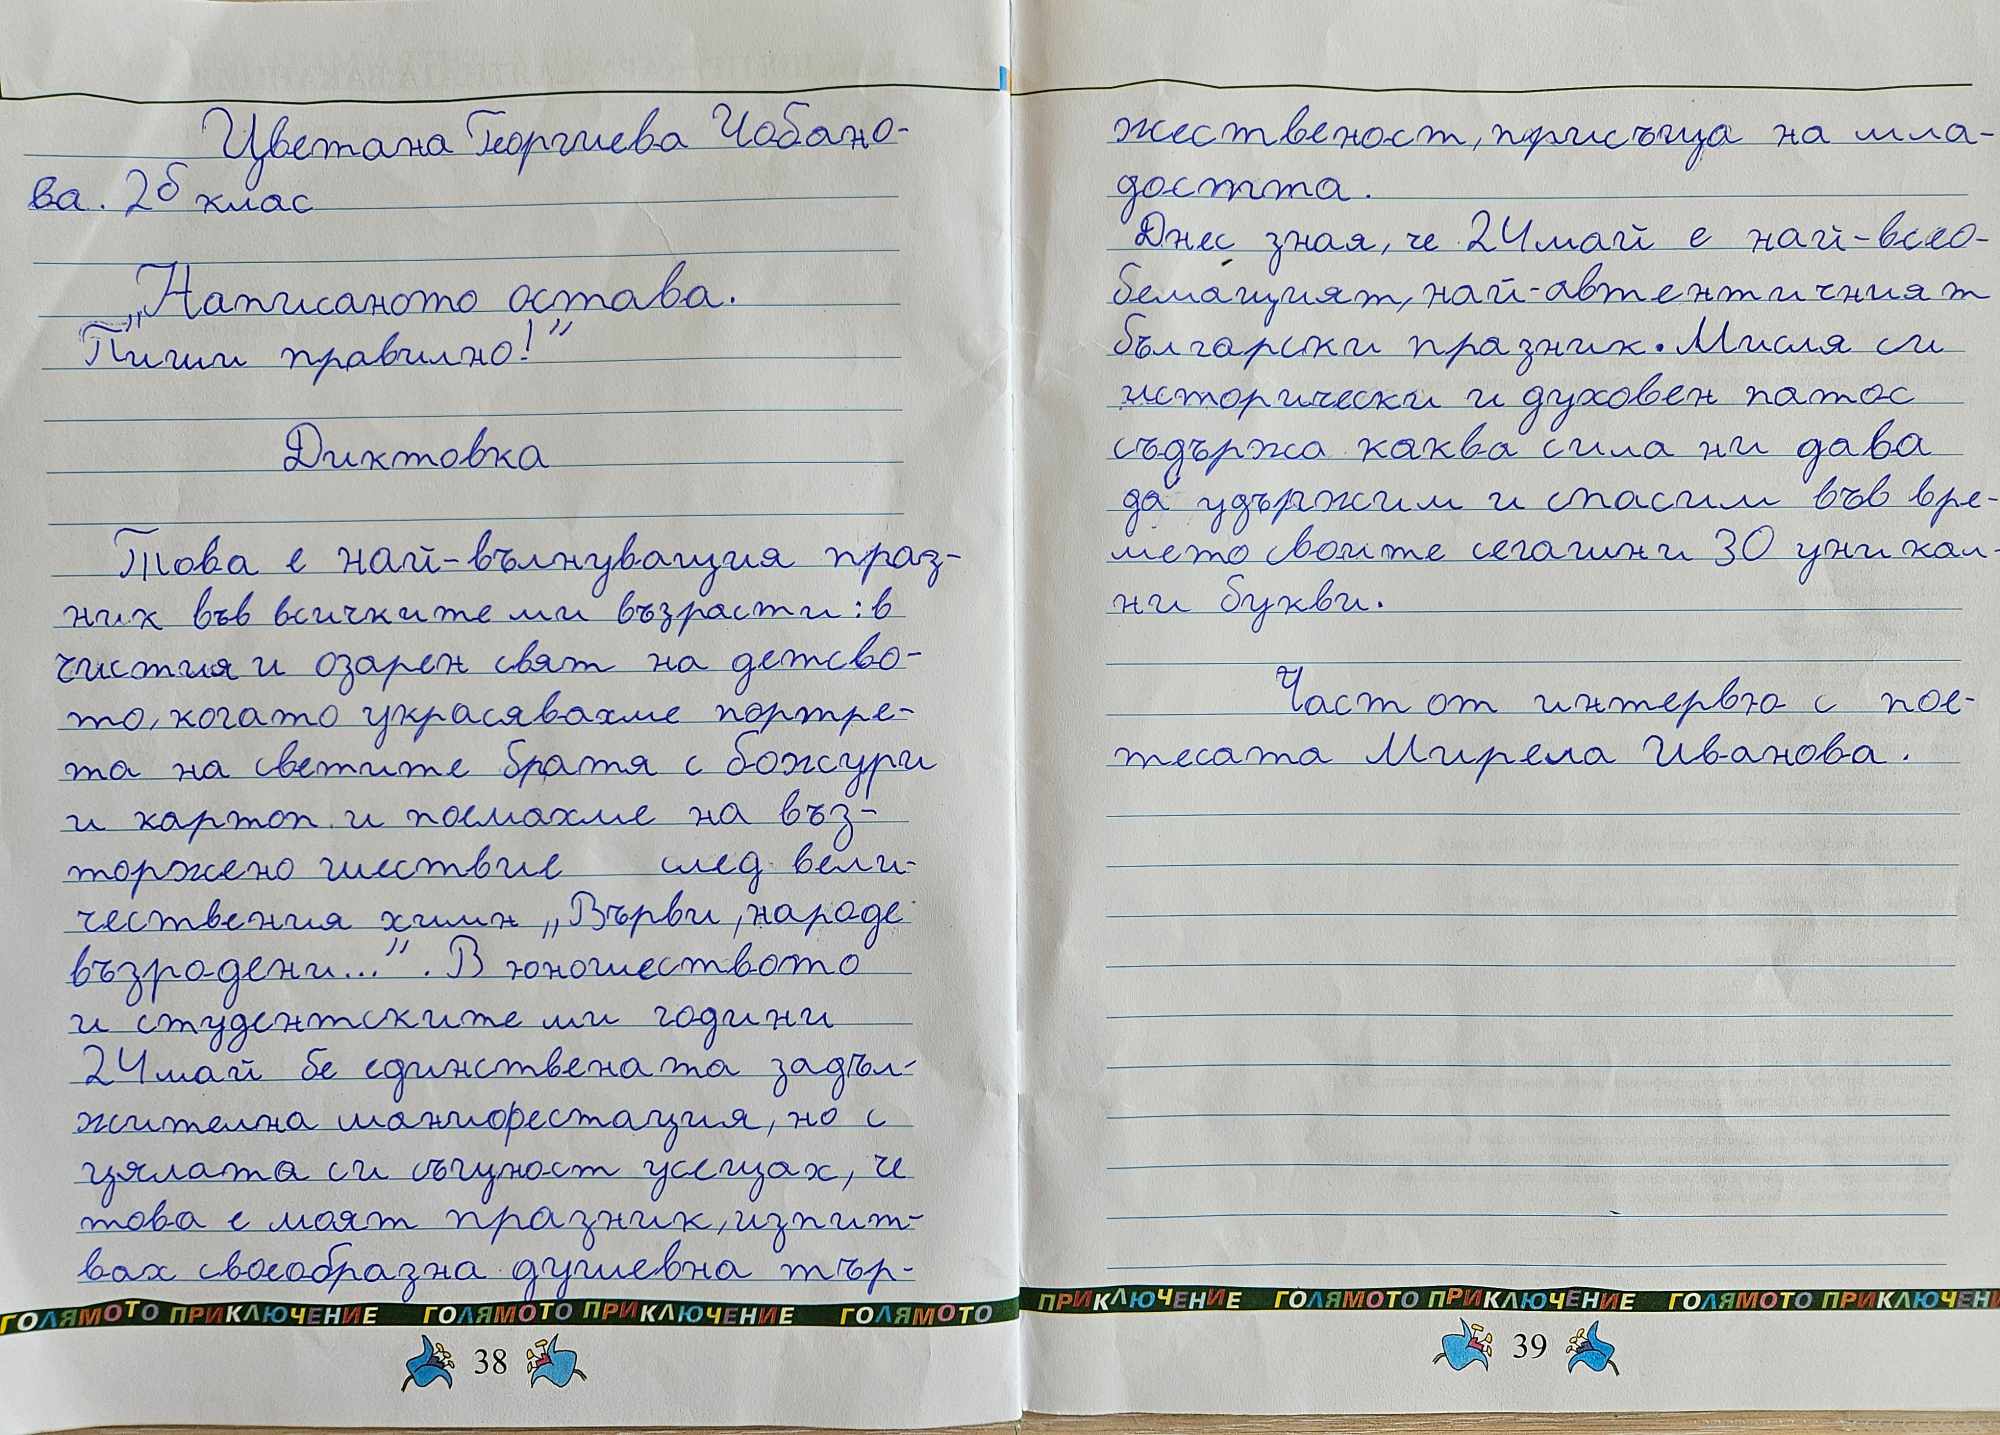 Цветана Георгиева Чобано-
ва. 2б клас
„Написаното остава.
Пиши правилно!”
Диктовка
Това е най-вълнуващия праз-
ник във всичките ми възрасти: в
чистия и озарен свят на детсво-
то, когато украсявахме портре-
та на светите братя с божури
и картоп и поемахме на въз-
торжено шествие след вели-
чествения химн „Върви, народе
възродени...”. В юношеството
и студентските ми години
24 май бе единствената задъл-
жителна манифестация, но с
цялата си същност усещах, че
това е моят празник, изпит-
вах своеобразна душевна тър-
ГОЛЯМОТО ПРИКЛЮЧЕНИЕ ГОЛЯМОТО ПРИКЛЮЧЕНИЕ ГОЛЯМОТО
38
жественост, присъща на мла-
достта.
Днес зная, че 24 май е най-всео-
бемащият, най-автентичният
български празник. Мисля си
исторически и духовен патос
съдържа каква сила ни дава
да удържим и спасим във вре-
мето своите сегашни 30 уникал-
ни букви.
Част от интервю с пое-
тесата Мирела Иванова.
ПРИКЛЮЧЕНИЕ ГОЛЯМОТО ПРИКЛЮЧЕНИЕ ГОЛЯМОТО ПРИКЛЮЧЕНИ
39